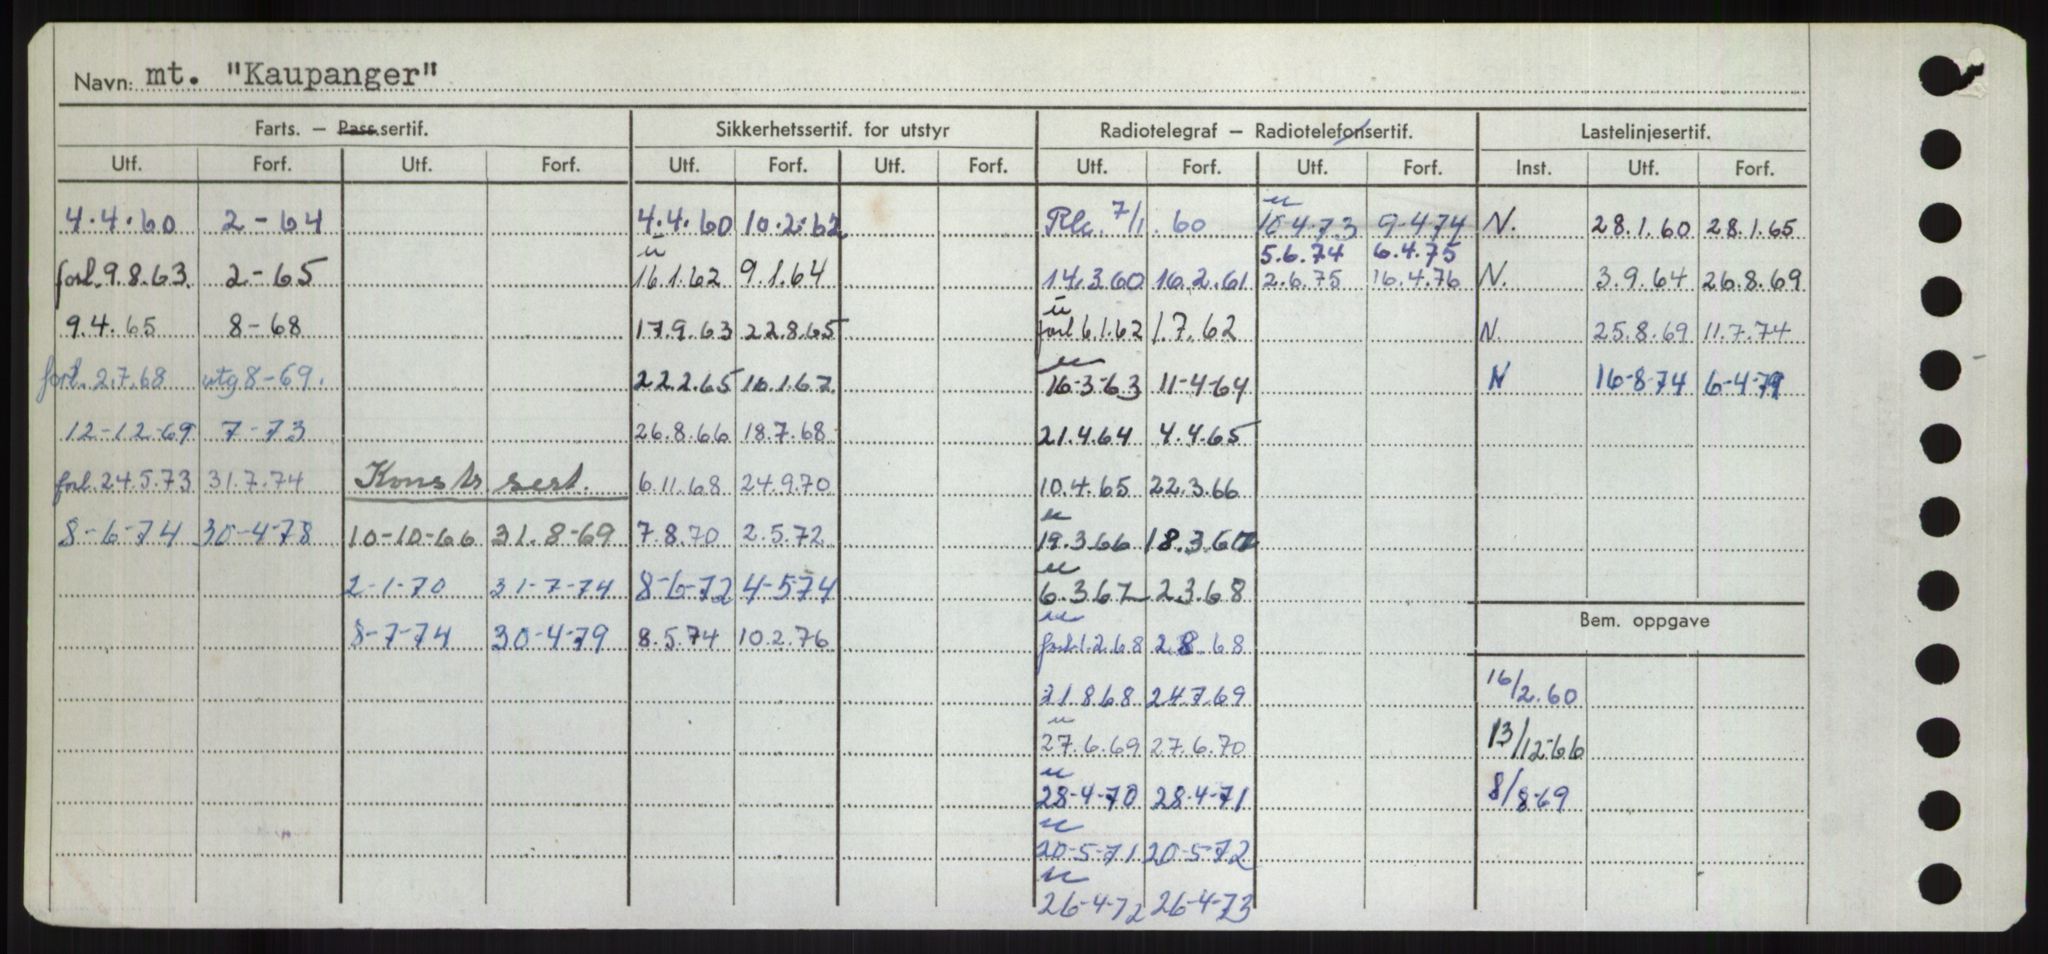 Navn: mt. "Kaupanger"
Farts. – Pass.sertif. Sikkerhetssertif. for utstyr Radiotelegraf – Radiotelefonsertif. Lastelinjesertif.
Utf. Forf. Utf. Forf. Utf. Forf. Utf. Forf. Utf. Forf. Utf. Forf. Inst. Utf. Forf.
4.4.60 2-64 4.4.60 10.2.62 7/1.60 10-4-73 9-4-74 N. 28.1.60 28.1.65
5.6.74 6.4.75
forl. 9.8.63 2-65 16.1.62 9.1.64 14.3.60 16.2.61 2.6.75 16.4.76 N. 3.9.64 26.8.69
9.4.65 8-68 17.9.63 22.8.65 forl 6.1.62 1.7.62 N. 25.8.69 11.7.74
forl. 2.7.68 utg 8-69. 22.2.65 10.1.67 16-3-63 11-4-64 N 16-8-74 6-4-79
12-12-69 7-73 26.8.66 18.7.68 21.4.64 4.4.65
forl. 24.5.73 31.7.74 Konstr sert. 6.11.68 24.9.70 10.4.65 22.3.66
8-6-74 30-4-78 10-10-66 31.8-69 7.8.70 2.5.72 19.3.66 18.3.67
2-1-70 31-7-74 8-6-72 4-5 74 6.3.67 2.3.68
Bem. oppgave
8-7-74 30-4-79 8.5.74 10.2.76 forl. 1.2.68 2.8.68
31.8.68 24.7.69 16/2.60
27.6.69 27.6.70 13/12-66
28-4-70 28-4-71 8/8-69
20-5-71 20-5-72
26-4-72 26-4-73